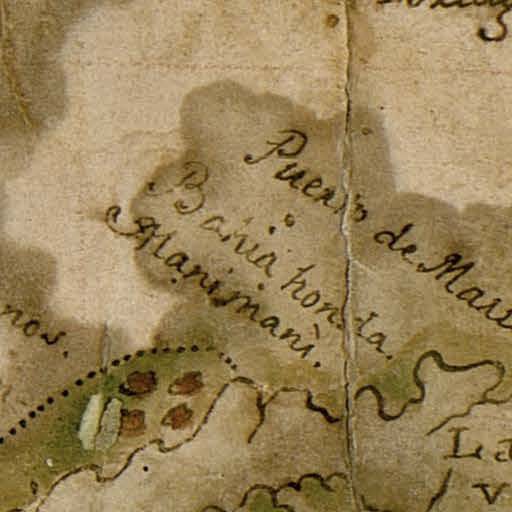 Puerto de Mari
Bahia honda.
Manimani.
nos.
La
v